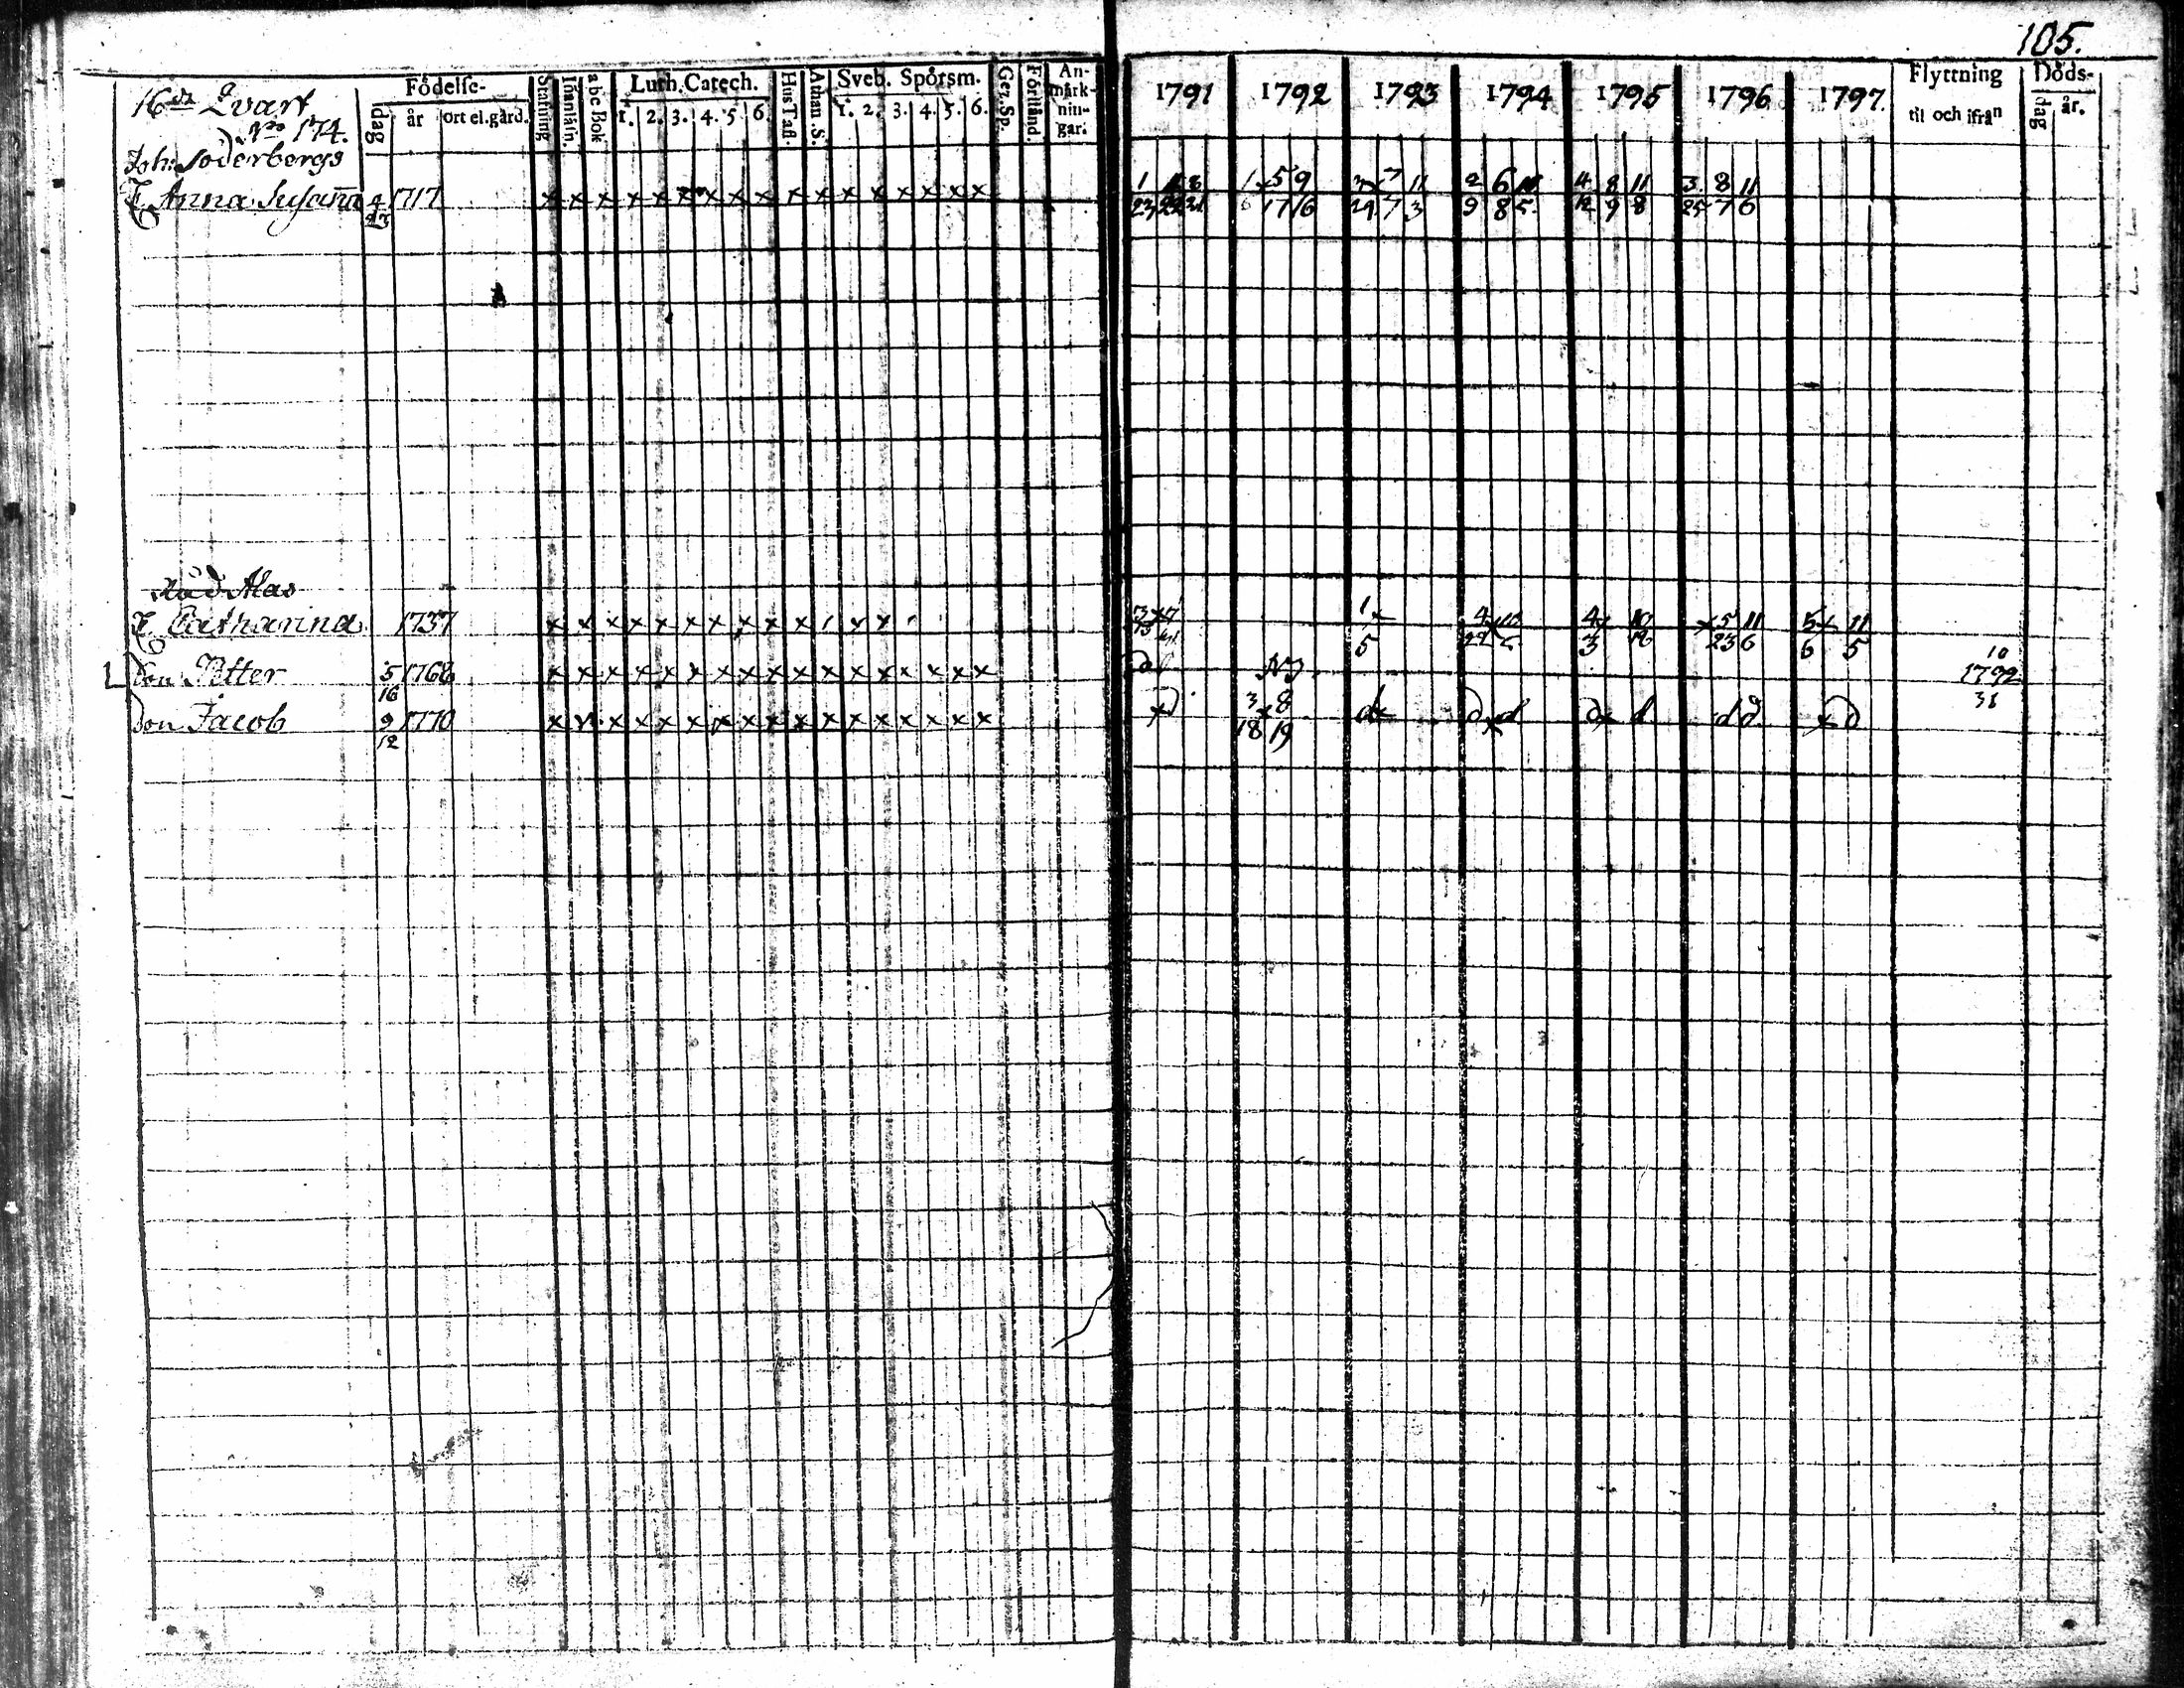 105.
16de Qvart
No 174.
Födelse-
dag
år
ort el. gård.
Stafning
Innanläsn.
a b c Bok
Luth. Catech.
1. 2. 3. 4. 5. 6.
Hus Tafl.
Athan. S.
Sveb. Spörsm.
1. 2. 3. 4. 5. 6.
Ger. Sp.
Förstånd.
An-
märk-
nin-
gar.
1791 1792 1793 1794 1795 1796 1797.
Flyttning
til och ifrån
Döds-
dag
år.
Joh: Söderbergs
E. Anna Susana 4/23 1717 x x x x x x x x x x x x x x x x
1 5 9 7 11 2 6 10 4 8 11 3. 8 11
17 16 29. 7 3 9 8 5. 12 9 8 25 7 6
E. Catharina 1737 x x x x x x x x x x x x
1 x 4 x 10 4 x 10 x 5 11 5 x 11
5 3 23 6 6 5
Son Petter 5/16 1768 x x x x x x x x x x x x x x x x
10
1792
31
Son Jacob 9/12 1770 x x x x x x x x x x x x x x x x
x d 3 x 8 d x d x d d x d d d x d
18 19